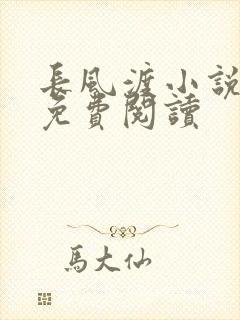 長風渡小説
免費閱讀
馬大仙